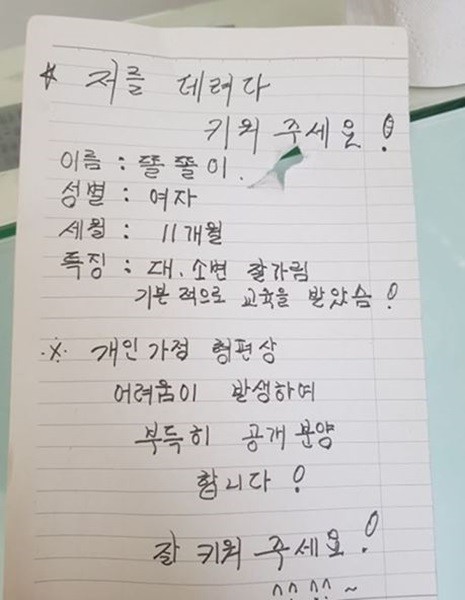 * 저를 데려다
키워 주세요!
이름 : 똘똘이.
성별 : 여자
세월 : 11개월
특징 : 대.소변 잘가림
기본적으로 교육을 받았슴!
※ 개인가정 형편상
어려움이 발생하여
부득히 공개분양
합니다!
잘 키워 주세요!
^^ ^^ ~